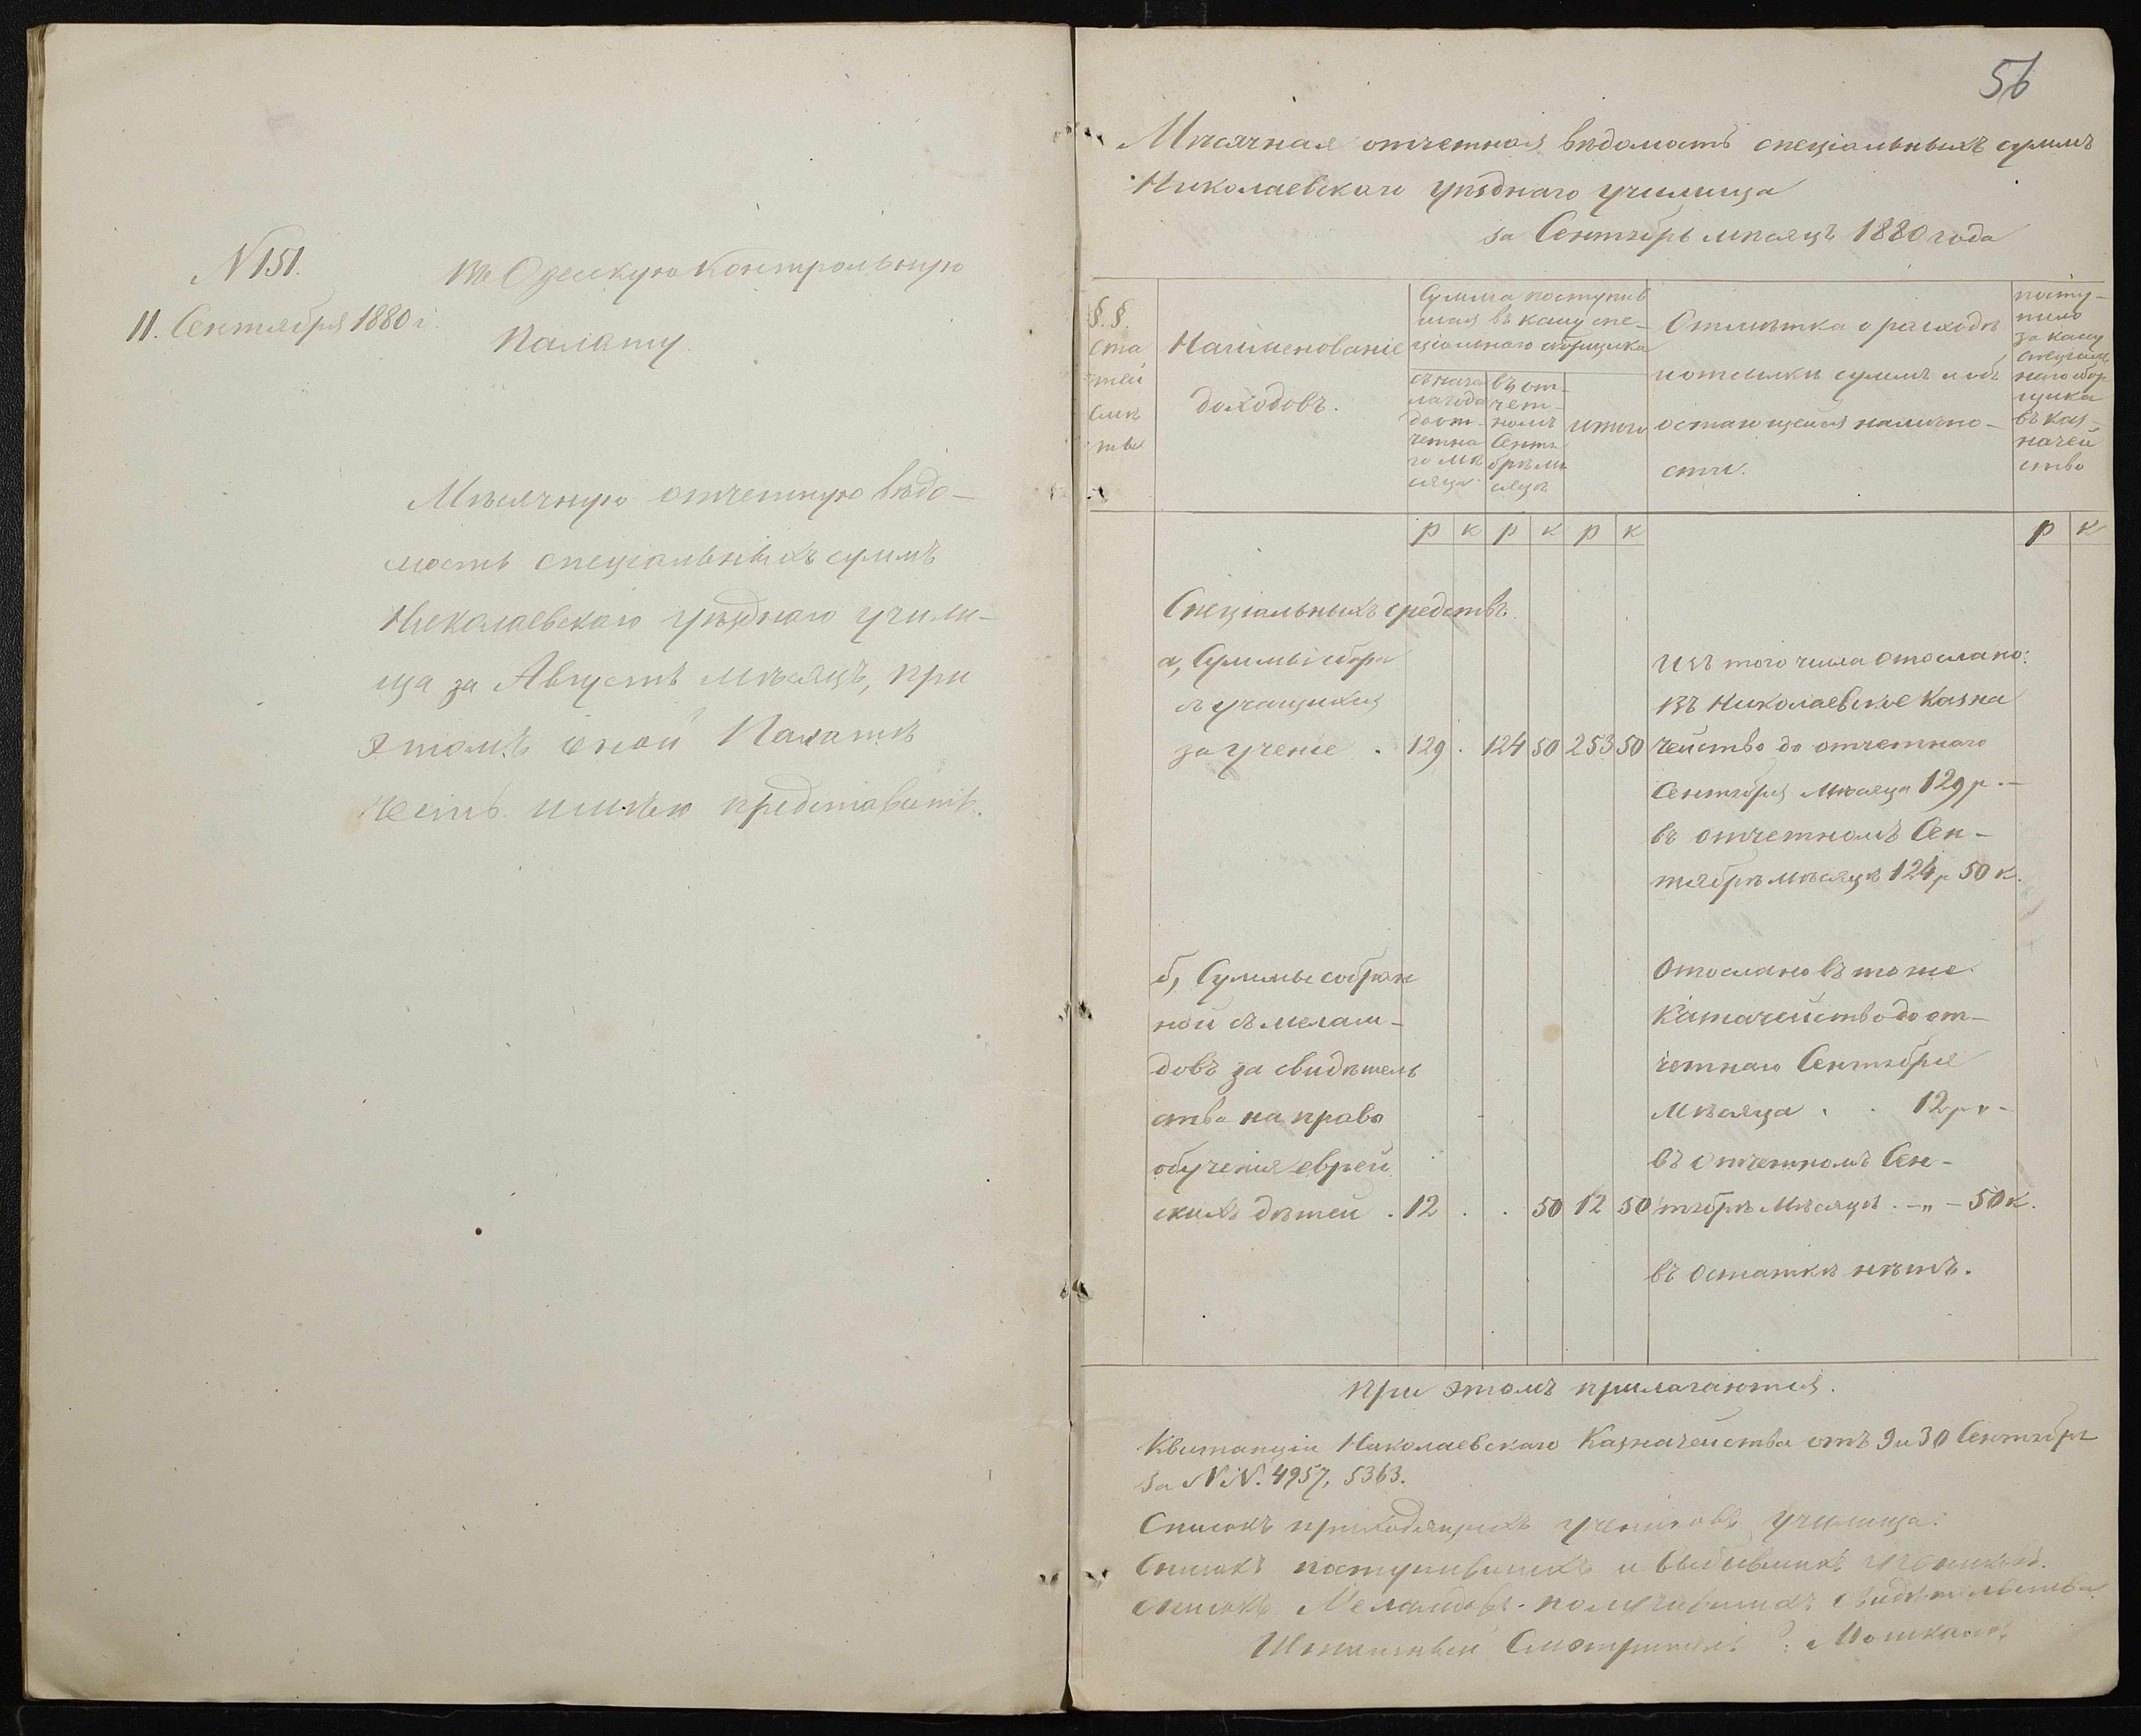 N 151.
11. Сентября 1880 г.
Въ Одесскую Контрольную
Палату.
Мѣсячную отчетную вѣдо-
мость спеціальныхъ суммъ
Николаевскаго уѣзднаго учили-
ща за Августъ мѣсяцъ, при
этомъ оной Палатѣ
честь имѣю представить.
56
Мѣсячная отчетная вѣдомость спеціальныхъ суммъ
Николаевскаго уѣзднаго училища
за Сентябрь мѣсяцъ 1880 года
§.§.
ста
тей
смѣ
ты
Наименованіе
доходовъ.
Сумма поступив
шая въ кассу спе-
ціальнаго сборщика
съ нача
ла года
до от-
четна
го мѣ
сяца
въ от-
чет-
номъ
Сентя
брѣ мѣ
сяцѣ
итого
Отмѣтка о расходѣ
и отсылкѣ суммъ и объ
остающейся налично-
сти.
посту-
пило
за кассу
спеціаль
наго сбор
щика
въ каз-
начей
ство
р к р к р к р к
Спеціальныхъ средствъ.
а, Суммы сбора
съ учащихся
за ученье . 129 . 124 50 253 50
Изъ того числа отослано:
въ Николаевское Казна
чейство до отчетнаго
Сентября мѣсяца 129 р. -
въ отчетномъ Сен-
тябрѣ мѣсяцѣ 124 р 50 к.
б, Суммы собран
ной съ мелам-
довъ за свидѣтель
ства на право
обученія еврей
скихъ дѣтей . 12 . . 50 12 50
Отослано въ тоже
Казначейство до от-
четнаго Сентября
мѣсяца . . 12 р " -
въ отчетномъ Сен-
тябрѣ мѣсяцѣ . - " - 50 к.
въ остаткѣ нѣтъ.
при этомъ прилагаются.
Квитанціи Николаевскаго Казначейства отъ 9 и 30 Сентября
за N N. 4957, 5363.
Списокъ приходящихъ учениковъ училища.
Списокъ поступившихъ и выбывшихъ учениковъ.
Списокъ Меламдовъ получившихъ свидѣтельства.
Штатный Смотритель